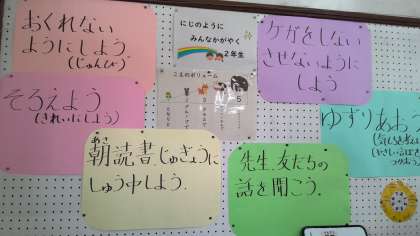 おくれない
ようにしよう
(じゅんび)
にじのように
みんなかがやく
2年生
ケガをしない
させないように
しよう
そろえよう
(きれいにしよう)
こえのボリューム
5
ゆずりあおう
朝読書、じゅぎょうに
あさ
しゅう中しよう.
先生、友だちの
話を聞こう.